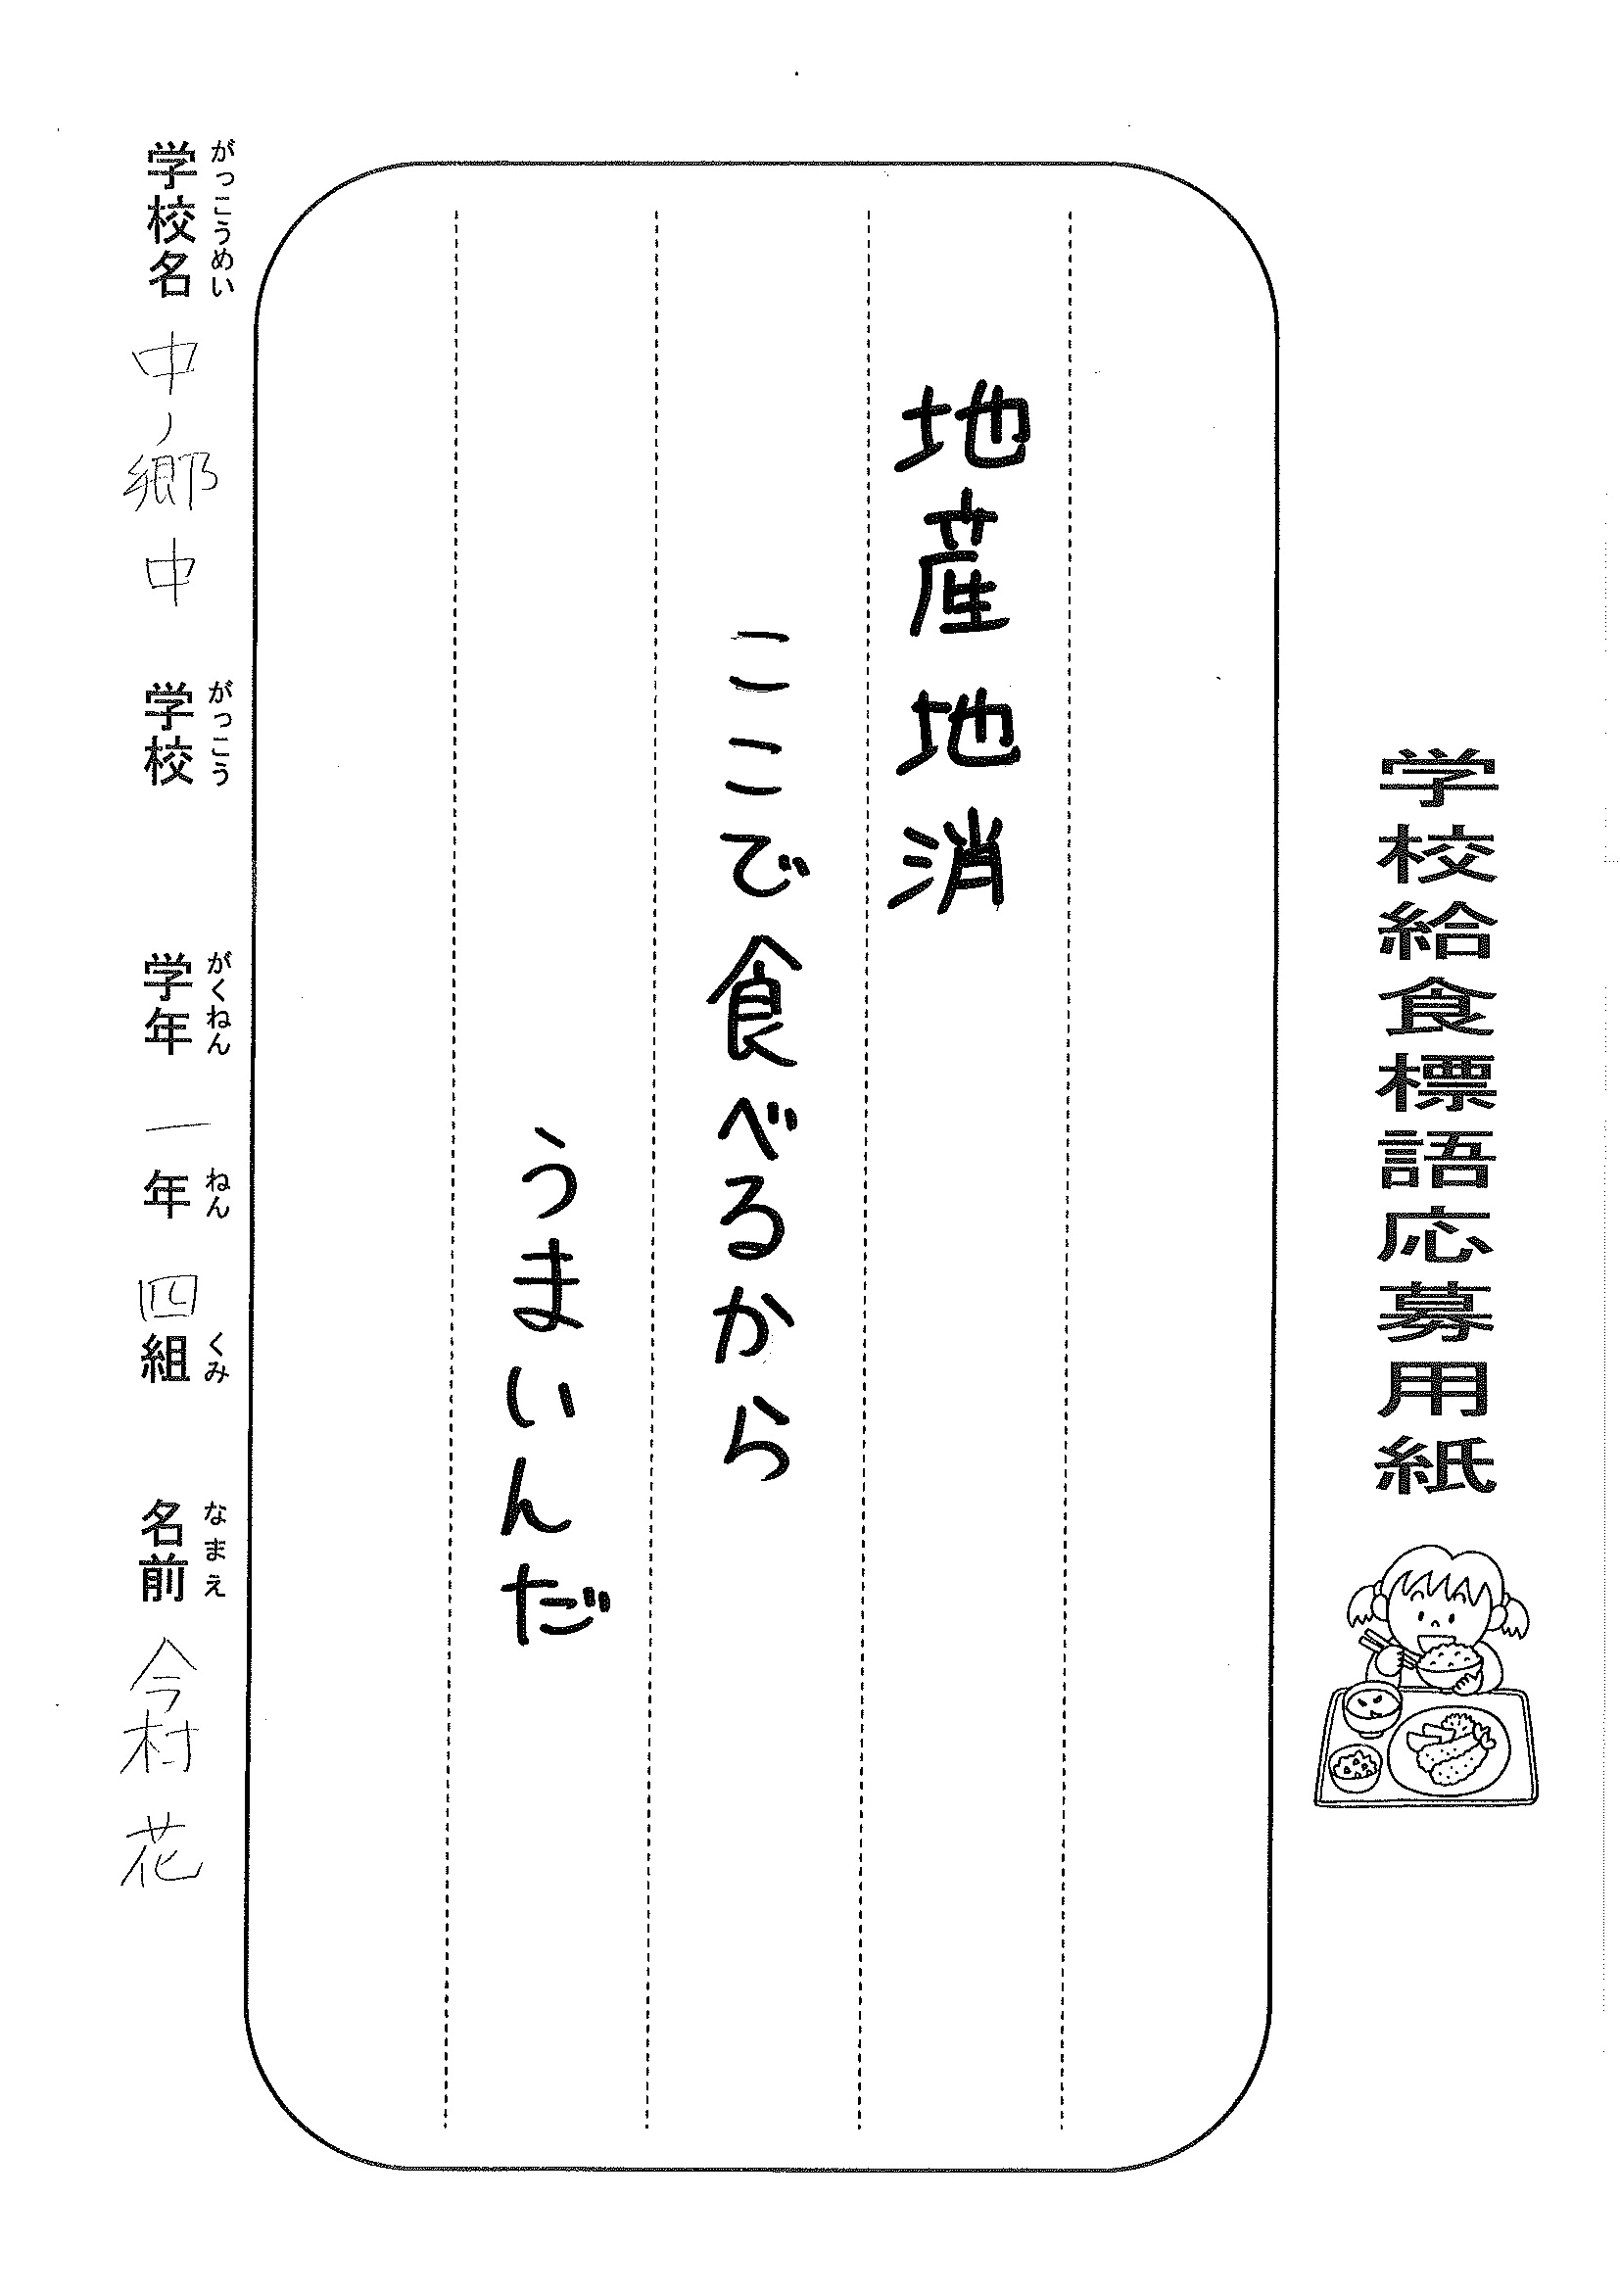 学校給食標語応募用紙
地産地消
ここで食べるから
うまいんだ
がっこうめい がっこう がくねん ねん くみ なまえ
学校名 中ノ郷中 学校 学年 一年 四組 名前 今村 花